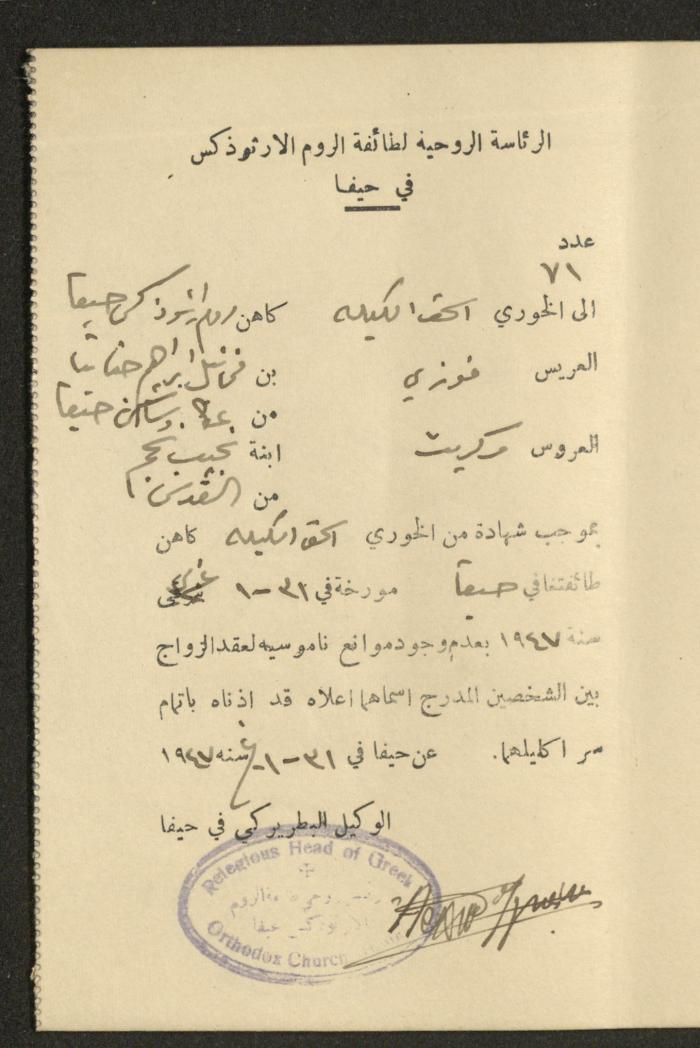 الرئاسة الروحية لطائفة الروم الارثوذكس
في حيفا
عدد
٧١
الى الخوري اسحق الكيله كاهن روم ارثوذكس حيفا
العريس فوزي بن ابراهيم حنا
من عكا وساكن حيفا
العروس مركريت ابنة نجيب نجم
من القدس
بموجب شهادة من الخوري اسحق الكيله كاهن
طائفتنا في حيفا مورخة في ٣١-١ غربي
سنة ١٩٤٧ بعدم وجود موانع ناموسيه لعقد الزواج
بين الشخصين المدرج اسماهما اعلاه قد اذناه باتمام
سر اكليلهما. عن حيفا في ٣١-١ غ سنه ١٩٤٧
الوكيل البطريركي في حيفا
Relegious Head of Greek
الروم
حيفا
Orthodox Church